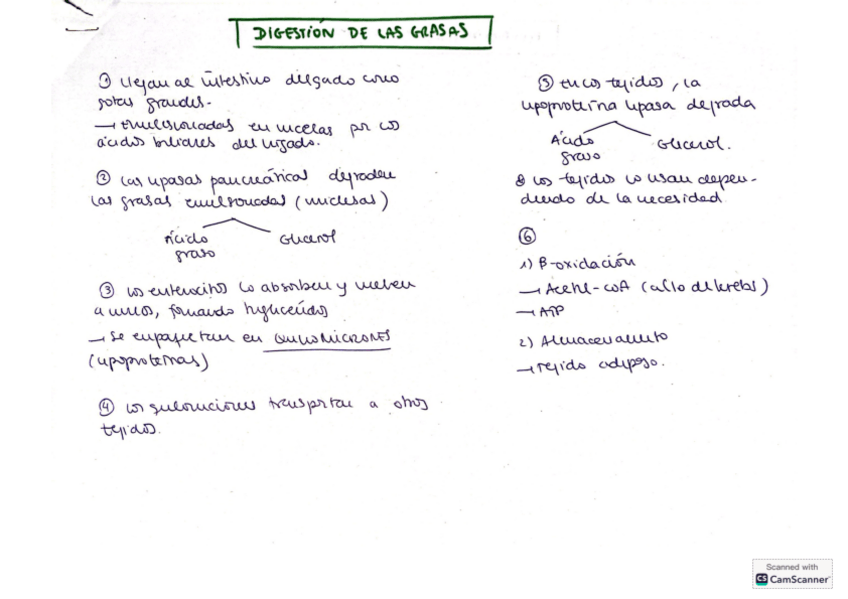 DIGESTIÓN DE LAS GRASAS
① llegan al intestino delgado como
gotas grandes.
→ emulsionadas en micelas por los
ácidos biliares del hígado.
② las lipasas pancreáticas degradan
las grasas emulsionadas (micelas)
Ácido
graso
Glicerol
③ los enterocitos lo absorben y vuelven
a unirlos, formando triglicéridos
→ Se empaquetan en QUILOMICRONES
(lipoproteínas)
④ los quilomicrones transportan a otros
tejidos.
⑤ En los tejidos, la
lipoproteína lipasa degrada
Ácido
graso
Glicerol.
los tejidos lo usan depen-
diendo de la necesidad
⑥
1) β-oxidación
→ Acetil-CoA (ciclo de Krebs)
→ ATP
2) Almacenamiento
→ Tejido adiposo.
Scanned with
CS CamScanner